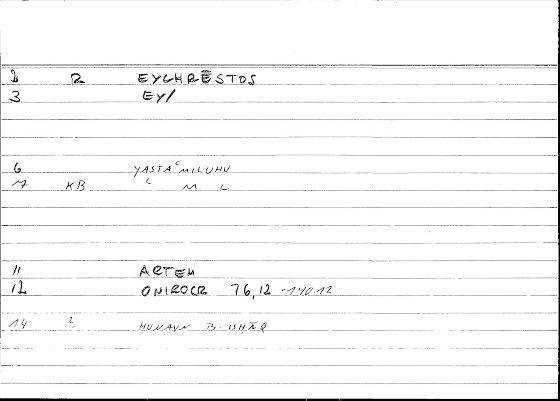 1 R EYCHRĒSTOS
3 EY/
6 YASTAʿMILUHU
7 KB ʿ M L
11 ARTEM
12 ONIROCR 76,12 -140.12
14 2 HUNAYN B. ISHĀQ